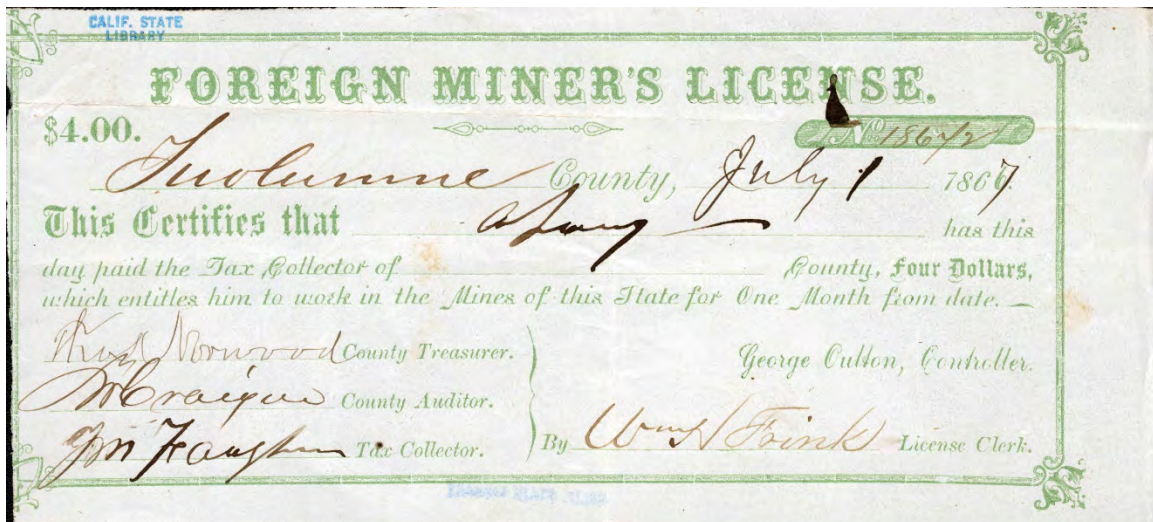 CALIF. STATE
LIBRARY
FOREIGN MINER'S LICENSE.
$4.00.
No. 18672
Tuolumne County, July 1 1867.
This Certifies that has this
day paid the Tax Collector of County, Four Dollars,
which entitles him to work in the Mines of this State for One Month from date.
Norwood County Treasurer.
County Auditor.
Tax Collector.
George Oulton, Controller.
By Wm H Frink License Clerk.